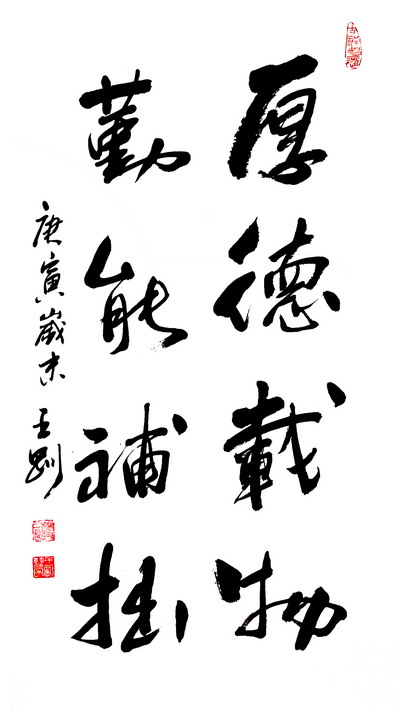 厚德載物
勤能補拙
庚寅歲末 王剛